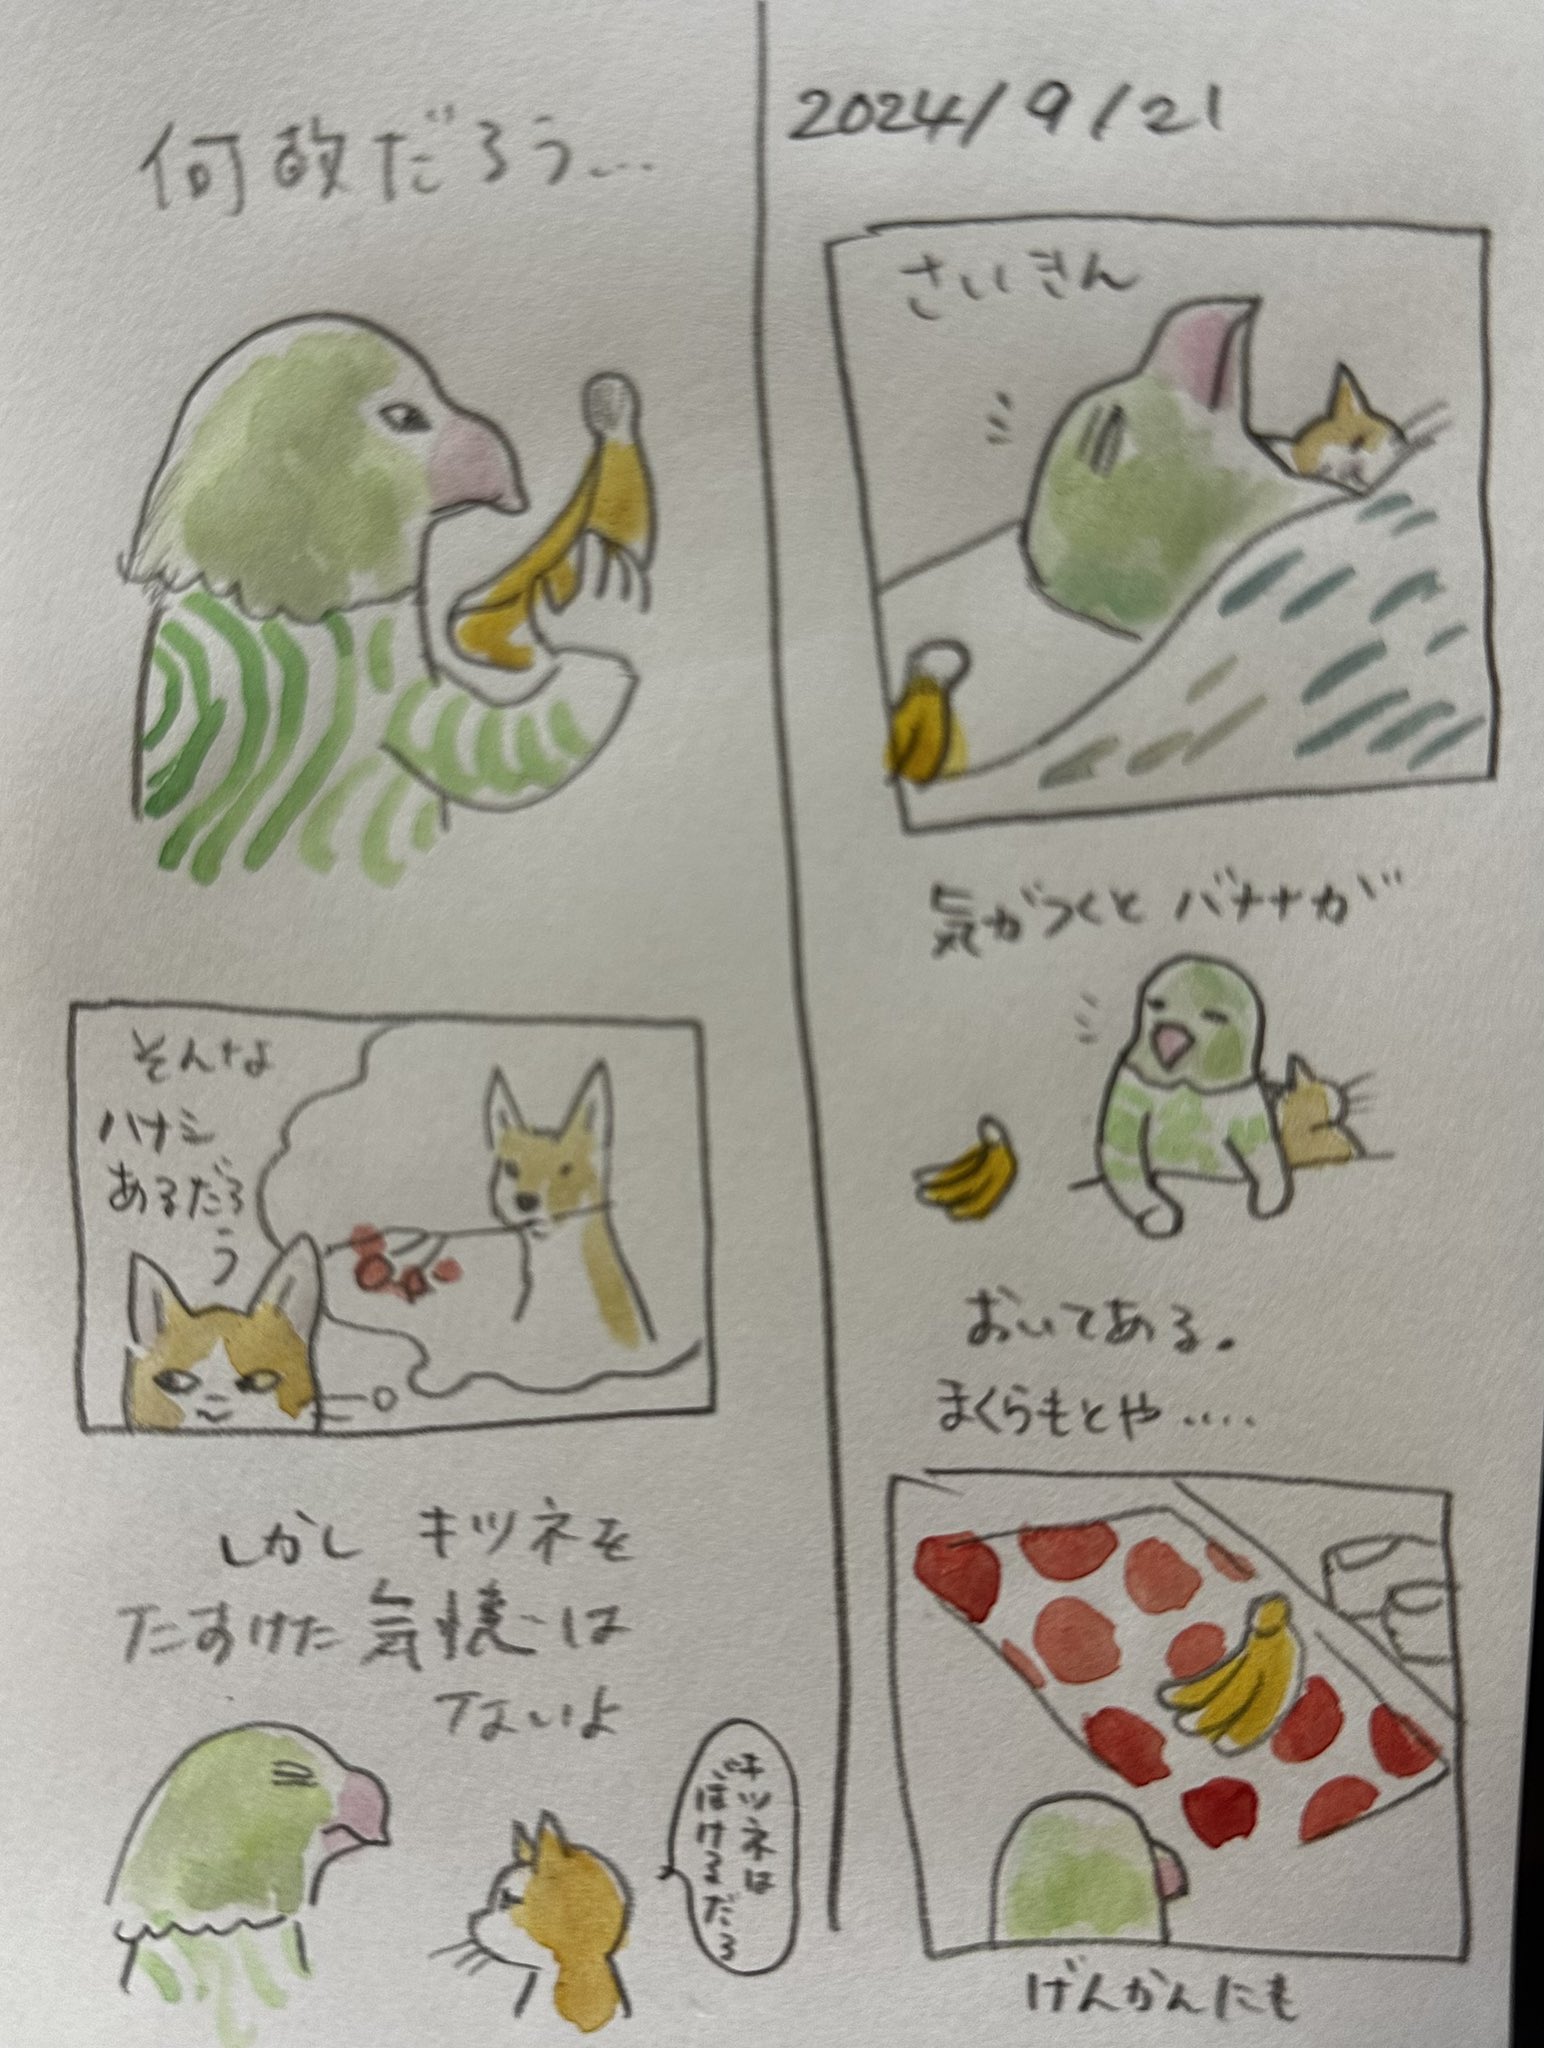 2024/9/21
さいきん
気がつくとバナナが
おいてある。
まくらもとや‥‥
げんかんにも
何故だろう…
そんな
ハナシ
あるだろ
う
しかし キツネを
たすけた気憶は
ないよ
キツネは
ばけるだろ